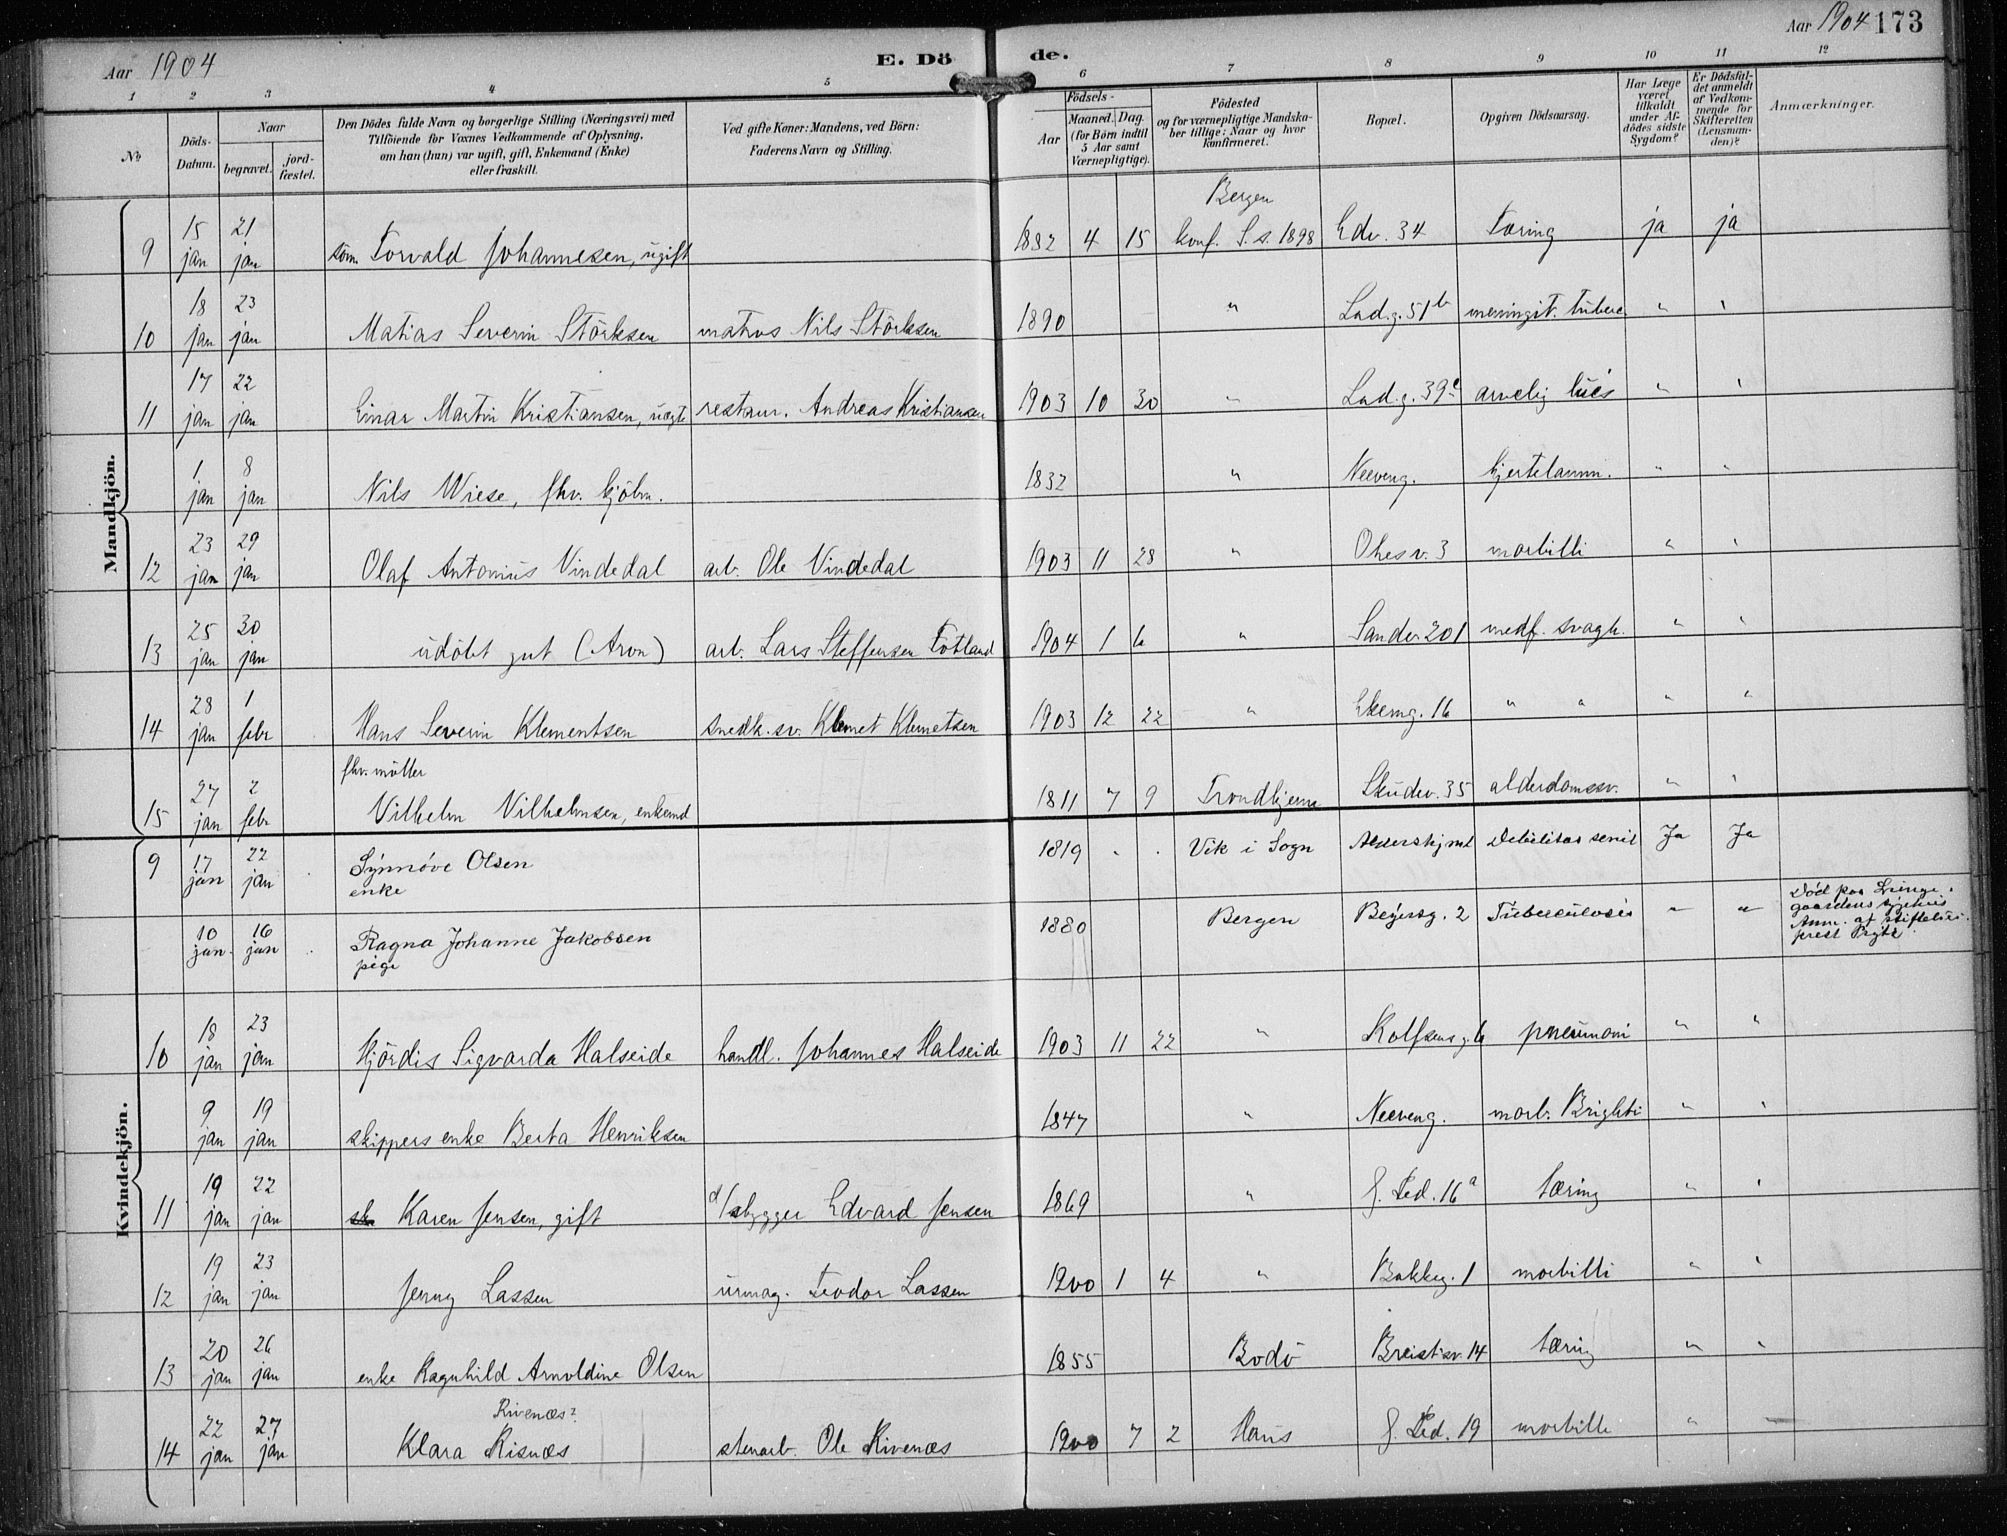 Aar 1904
E. Döde.
Aar 1904 173
1 2 3 4 5 6 7 8 9 10 11 12
No
Döds-Datum.
Naar
begravet.
jordfæstet.
Den Dödes fulde Navn og borgerlige Stilling (Næringsvei) med
Tilföiende for Voxnes Vedkommende af Oplysning,
om han (hun) var ugift, gift, Enkemand (Enke)
eller fraskilt.
Ved gifte Koner: Mandens, ved Börn:
Faderens Navn og Stilling.
Födsels-
Aar
Maaned. Dag.
(for Börn indtil
5 Aar samt
Værnepligtige).
Födested
og for værnepligtige Mandskaber tillige: Naar og hvor
konfirmeret.
Bopæl.
Opgiven Dödsaarsag.
Har Læge
været
tilkaldt
under Afdödes sidste
Sygdom?
Er Dödsfaldet anmeldt
af Vedkommende for
Skifteretten
(Lensmanden)?
Anmærkninger.
Mandkjön.
9 15 jan 21 jan söm. Torvald Johannesen, ugift 1882 4 15 Bergen konf. S.s. 1898 Edv. 34 Tæring ja ja
10 18 jan 23 jan Matias Severin Störksen matros Nils Störksen 1890 " Lad.g. 51b meningit. tuberc " "
11 17 jan 22 jan Einar Martin Kristiansen, uægte restaur. Andreas Kristiansen 1903 10 30 " Lad.g. 39c arvelig lues " "
1 jan 8 jan Nils Wiese, fhv. kjöbm. 1832 " Neeveng. hjertelamm. " "
12 23 jan 29 jan Olaf Antonius Vindedal arb. Ole Vindedal 1903 11 28 " Ohesv. 3 morbilli " "
13 25 jan 30 jan udöbt gut (Aron) arb. Lars Steffensen Totland 1904 1 6 " Sandv. 201 medf. svagh. " "
14 28 jan 1 febr Hans Severin Klementsen snedk.sv. Klemet Klemetsen 1903 12 22 " Ekeng. 16 " " " "
15 27 jan 2 febr fhv. möller Vilhelm Vilhelmsen, enkemd 1811 7 9 Trondhjem Skudev. 35 alderdomssv. " "
Kvindekjön.
9 17 jan 22 jan Synnöve Olsen enke 1819 . . Vik i Sogn Aldershjmt Debilitas senil Ja Ja
10 jan. 16 jan Ragna Johanne Jakobsen pige 1880 Bergen Beyersg. 2 Tuberculosis " " Död paa Lungegaardens sygehus Anm. af stiftelsesprest
10 18 jan 23 jan Hjördis Sigvarda Halseide handl. Johannes Halseide 1903 11 22 " Rolfsensg. 6 pneumoni " "
9 jan 19 jan skippers enke Berta Henriksen 1847 " Neeveng. morb. Brighti " "
11 19 jan 22 jan Karen Jensen, gift d/sbygger Edvard Jensen 1869 " g. Lad. 16a tæring " "
12 19 jan 23 jan Jenny Lassen urmag. Teodor Lassen 1900 1 4 " Bakkeg. 1 morbilli " "
13 20 jan 26 jan enke Ragnhild Arnoldine Olsen 1855 Bodö Breistsv. 14 tæring " "
Rivenæs?
14 22 jan 27 jan Klara Risnæs stenarb. Ole Rivenæs 1900 7 2 Haus g. Lad. 19 morbilli " "